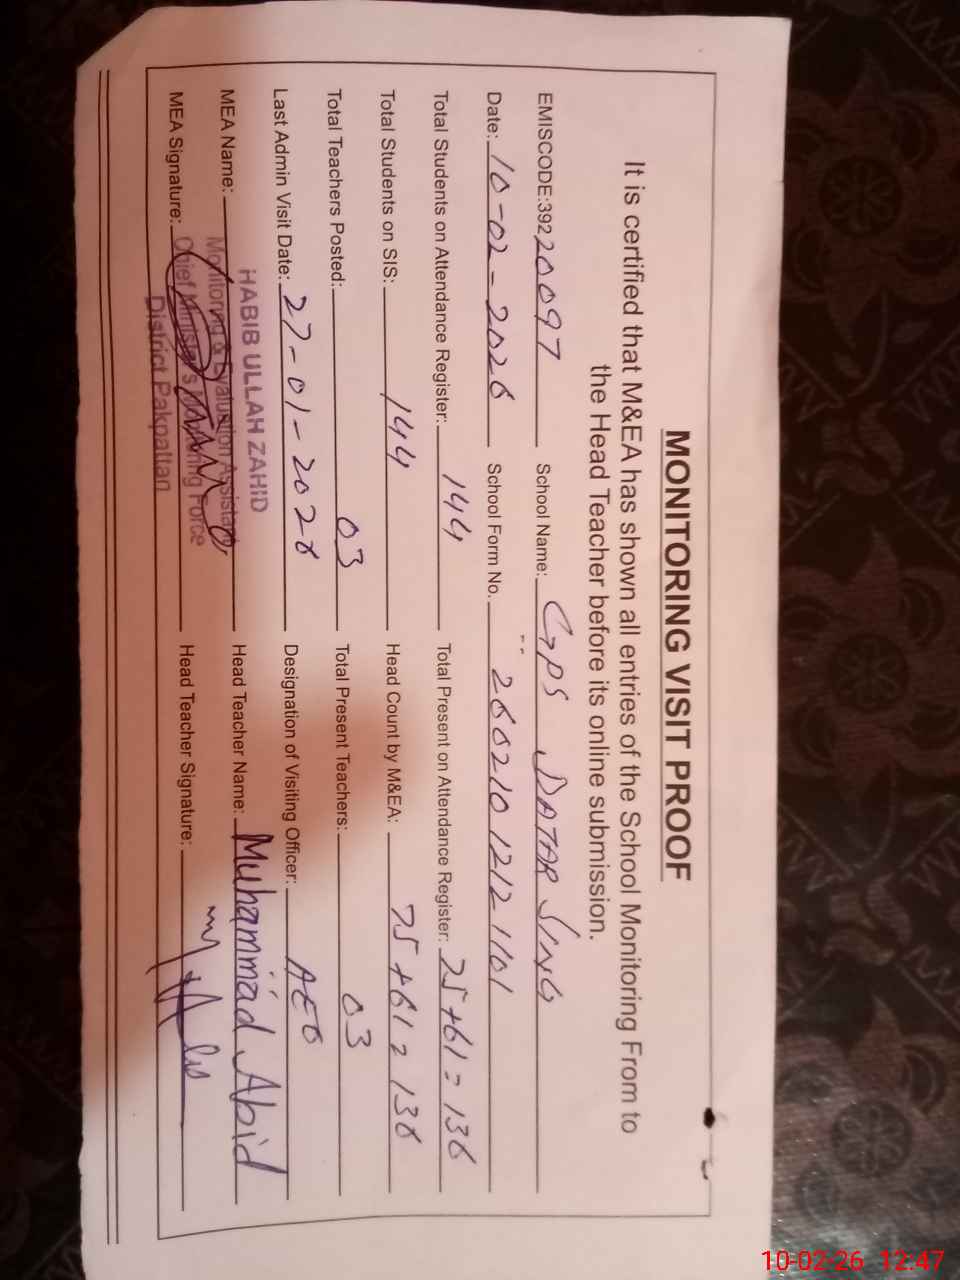 MONITORING VISIT PROOF
It is certified that M&EA has shown all entries of the School Monitoring From to
the Head Teacher before its online submission.
EMISCODE:39220097 School Name: GPS DATAR SING
Date: 10-02-2026 School Form No. 26021012121101
Total Students on Attendance Register: 144 Total Present on Attendance Register: 75+61=136
Total Students on SIS: 144 Head Count by M&EA: 75+61=136
Total Teachers Posted: 03 Total Present Teachers: 03
Last Admin Visit Date: 27-01-2026 Designation of Visiting Officer: AEO
HABIB ULLAH ZAHID
MEA Name: Monitoring & Evaluation Assistant Head Teacher Name: Muhammad Abid
MEA Signature: Chief Minister's Monitoring Force Head Teacher Signature:
District Pakpattan
10-02-26 12:47